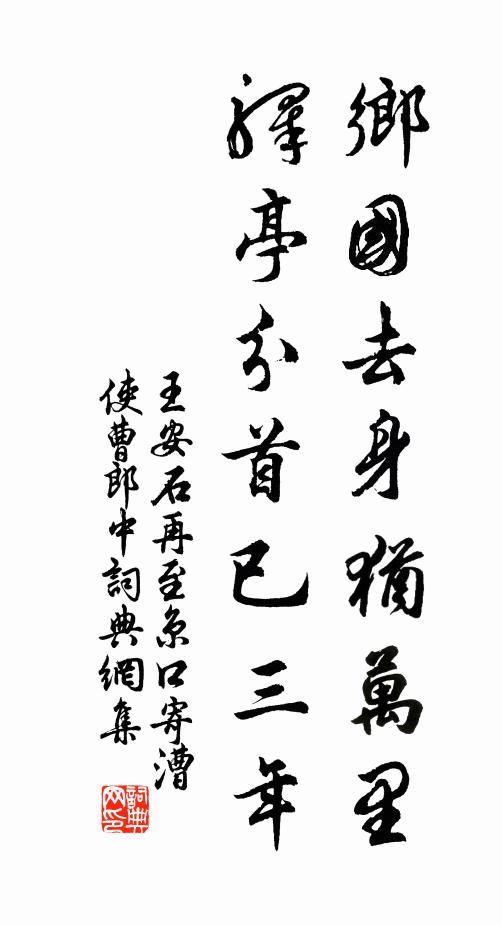 鄉國去身猶萬里
驛亭分首已三年
王安石再至京口寄漕
使曹郎中詞典網集
詞典
网印